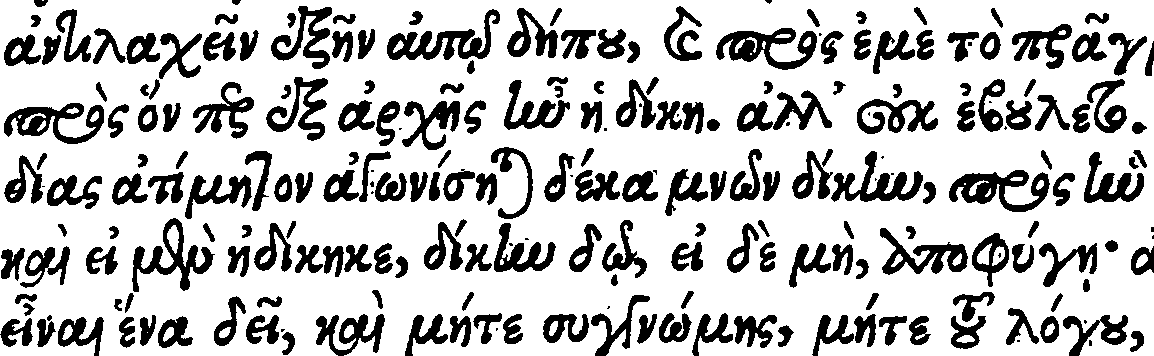 ἀντιλαχεῖν ἐξῆν αὐτῷ δήπου, καὶ πρὸς ἐμὲ τὸ πρᾶγμ
πρὸς ὅν περ ἐξ ἀρχῆς ἦν ἡ δίκη. ἀλλ' οὐκ ἐβούλετο.
δίας ἀτίμητον ἀγωνίσηται δέκα μνῶν δίκην, πρὸς ἣν
καὶ εἰ μὲν ἠδίκηκε, δίκην δῷ, εἰ δὲ μὴ, ἀποφύγῃ· ἀ
εἶναι ἕνα δεῖ, καὶ μήτε συγγνώμης, μήτε τοῦ λόγου,